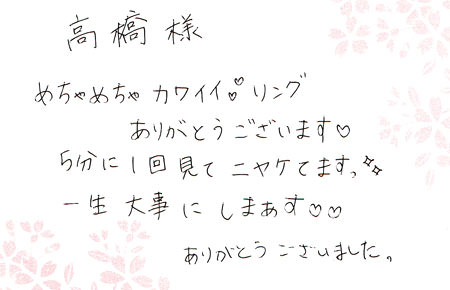 高橋様
めちゃめちゃ カワイイ♡ リング
ありがとうございます♡
5分に1回見て ニヤケてます。✨
一生 大事に しまぁす♡♡
ありがとうございました。